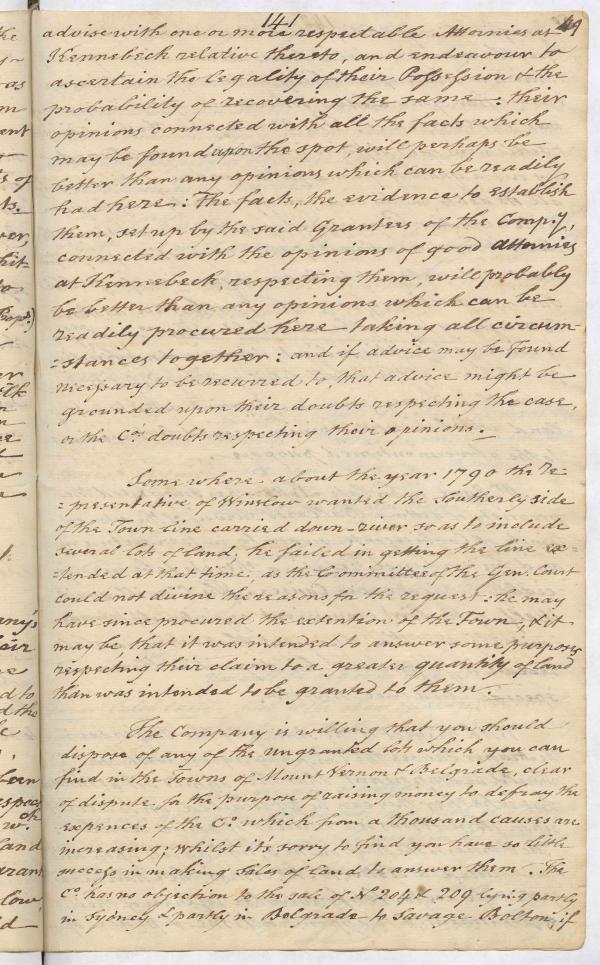 141
49
advise with one or more respectable Attornies at
Kennebeck relative thereto, and endeavour to
ascertain the legality of their Possession & the
probability of recovering the same: their
opinions connected with all the facts which
may be found upon the spot, will perhaps be
better than any opinions which can be readily
had here: The facts, the evidence to establish
them, set up by the said Grantees of the Comp.y,
connected with the opinions of good attornies
at Kennebeck, respecting them, will probably
be better than any opinions which can be
readily procured here taking all circum-
=stances together: and if advice may be found
necessary to be recurred to, that advice might be
grounded upon their doubts respecting the case,
or the Co. doubts respecting their opinions.
Some where about the year 1790 the re=
=presentative of Winslow wanted the Southerly side
of the Town line carried down-river so as to include
several lots of land, he failed in getting the line ex=
=tended at that time, as the Committee of the Gen. Court
could not divine the reasons for the request: he may
have since procured the extention of the Town, & it
may be, that it was intended to answer some purposes
respecting their claim to a greater quantity of land
than was intended to be granted to them.
The Company is willing that you should
dispose of any of the ungranted lots which you can
find in the Towns of Mount Vernon & Belgrade, clear
of dispute, for the purpose of raising money to defray the
expences of the Co. which from a thousand causes are
increasing; Whilst it's sorry to find you have so little
success in making sales of land to answer them. The
Co. has no objection to the sale of No 204 & 209 lying partly
in Sydney & partly in Belgrade to Savage Bolton, if